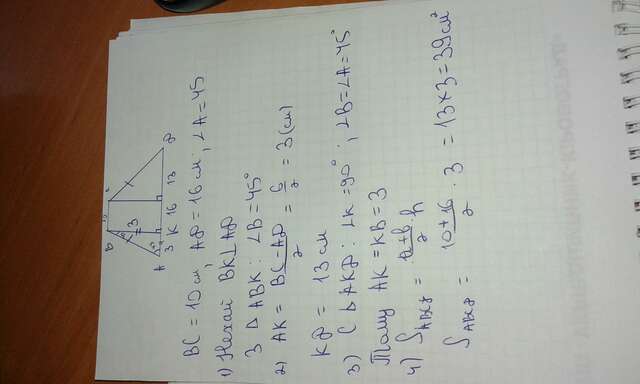 B
3
A 3 K 16 13 D
BC = 10 см, AD = 16 см; ∠A = 45
1) Нехай BK⊥AD
З △ ABK: ∠B = 45°
2) AK = BC - AD / 2 = 6 / 2 = 3 (см)
KD = 13 см
3) С △ AKD: ∠K = 90°; ∠B = ∠A = 45°
Тому AK = KB = 3
4) S ABCD = a + b / 2 · h
S ABCD = 10 + 16 / 2 · 3 = 13 × 3 = 39 см²